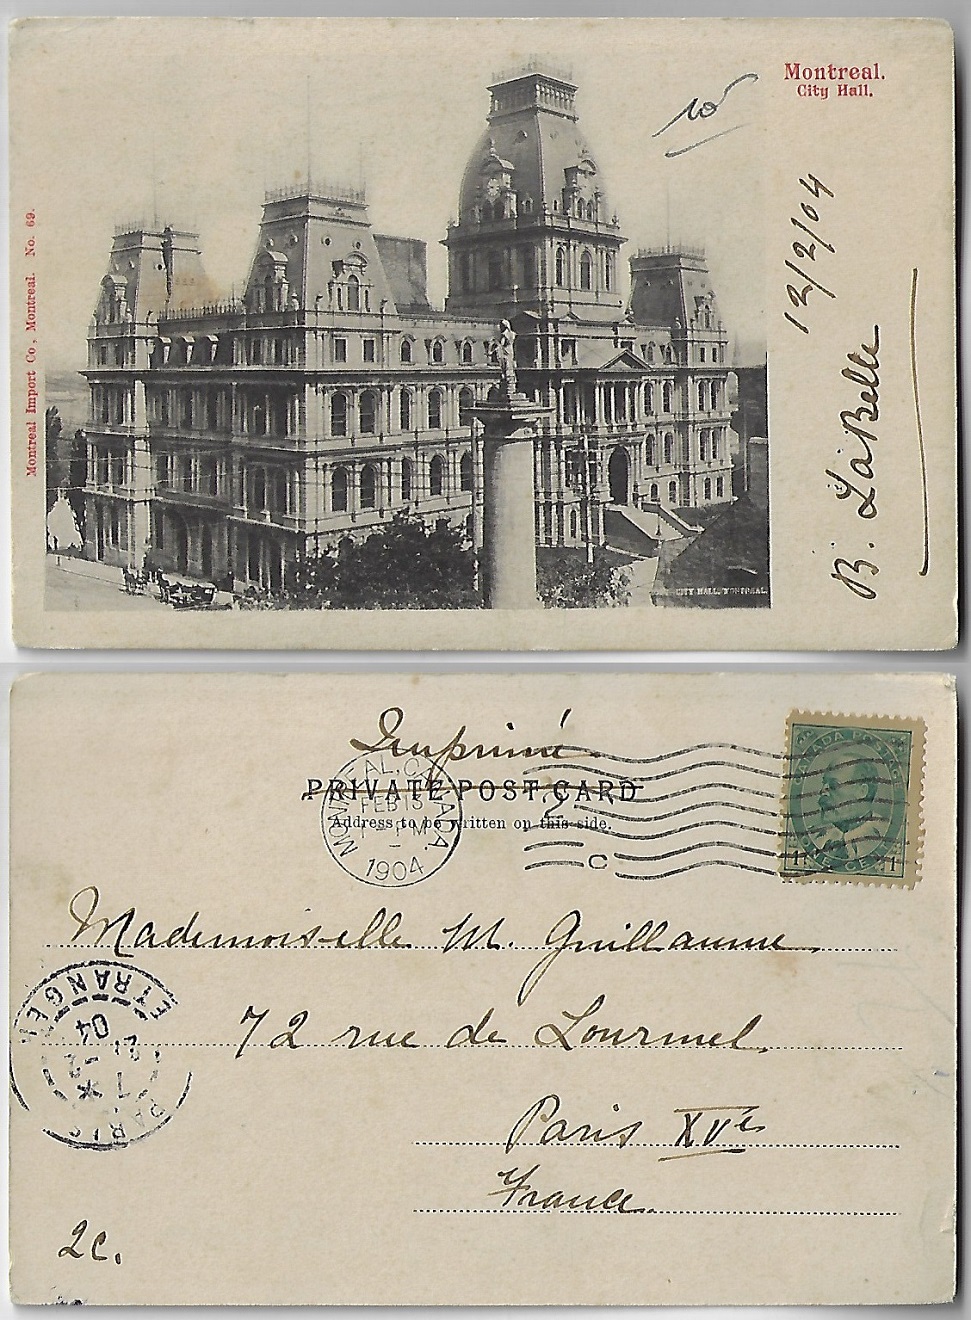 Montreal.
City Hall.
12/2/04
B. LaBelle
Montreal Import Co, Montreal. No. 69.
CITY HALL, MONTREAL.
Imprimé
PRIVATE POST CARD
Address to be written on this side.
MONTREAL, CANADA
FEB 13
PM
1904
C
CANADA POSTAGE
1 ONE CENT 1
Mademoiselle M. Guillaume
72 rue de Lourmel.
Paris XVè
France.
PARIS
ETRANGER
04
2c.